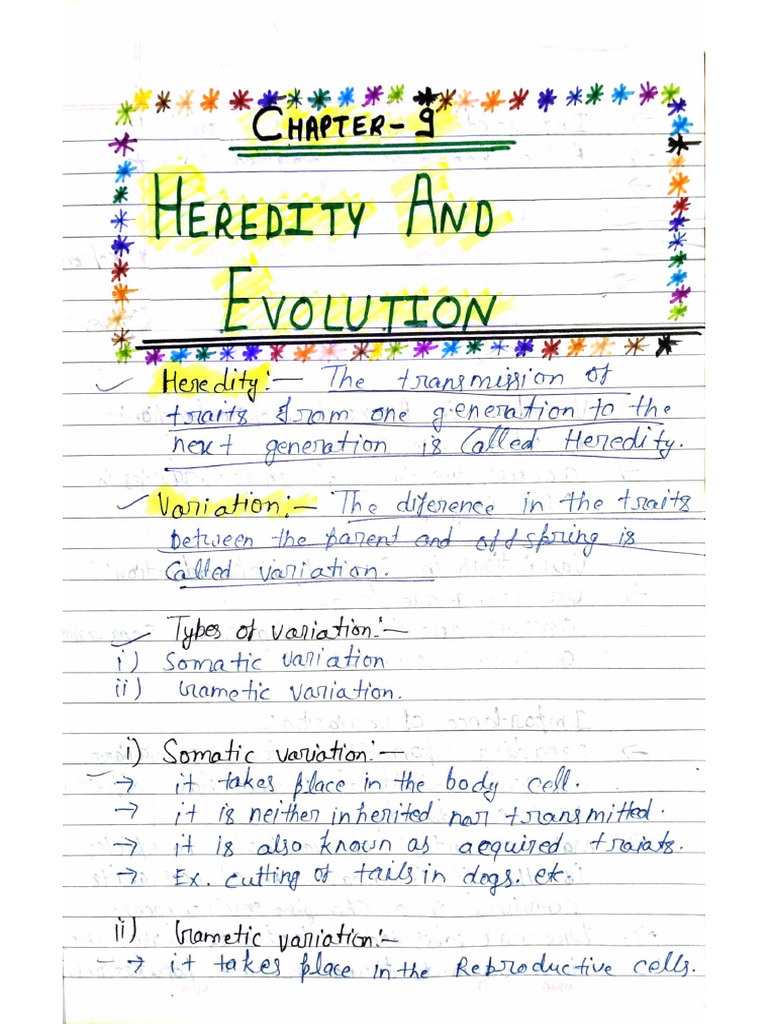 CHAPTER-9
HEREDITY AND
EVOLUTION
Heredity:- The transmission of
traits from one generation to the
next generation is Called Heredity.
Variation:- The diference in the traits
between the parent and offspring is
Called variation.
Types of variation:-
i) Somatic variation
ii) Gametic variation.
i) Somatic variation:-
→ it takes place in the body cell.
→ it is neither inherited nor transmitted.
→ it is also known as acquired traiats.
→ Ex. cutting of tails in dogs. etc.
ii) Gametic variation:-
→ it takes place in the Reproductive cells.